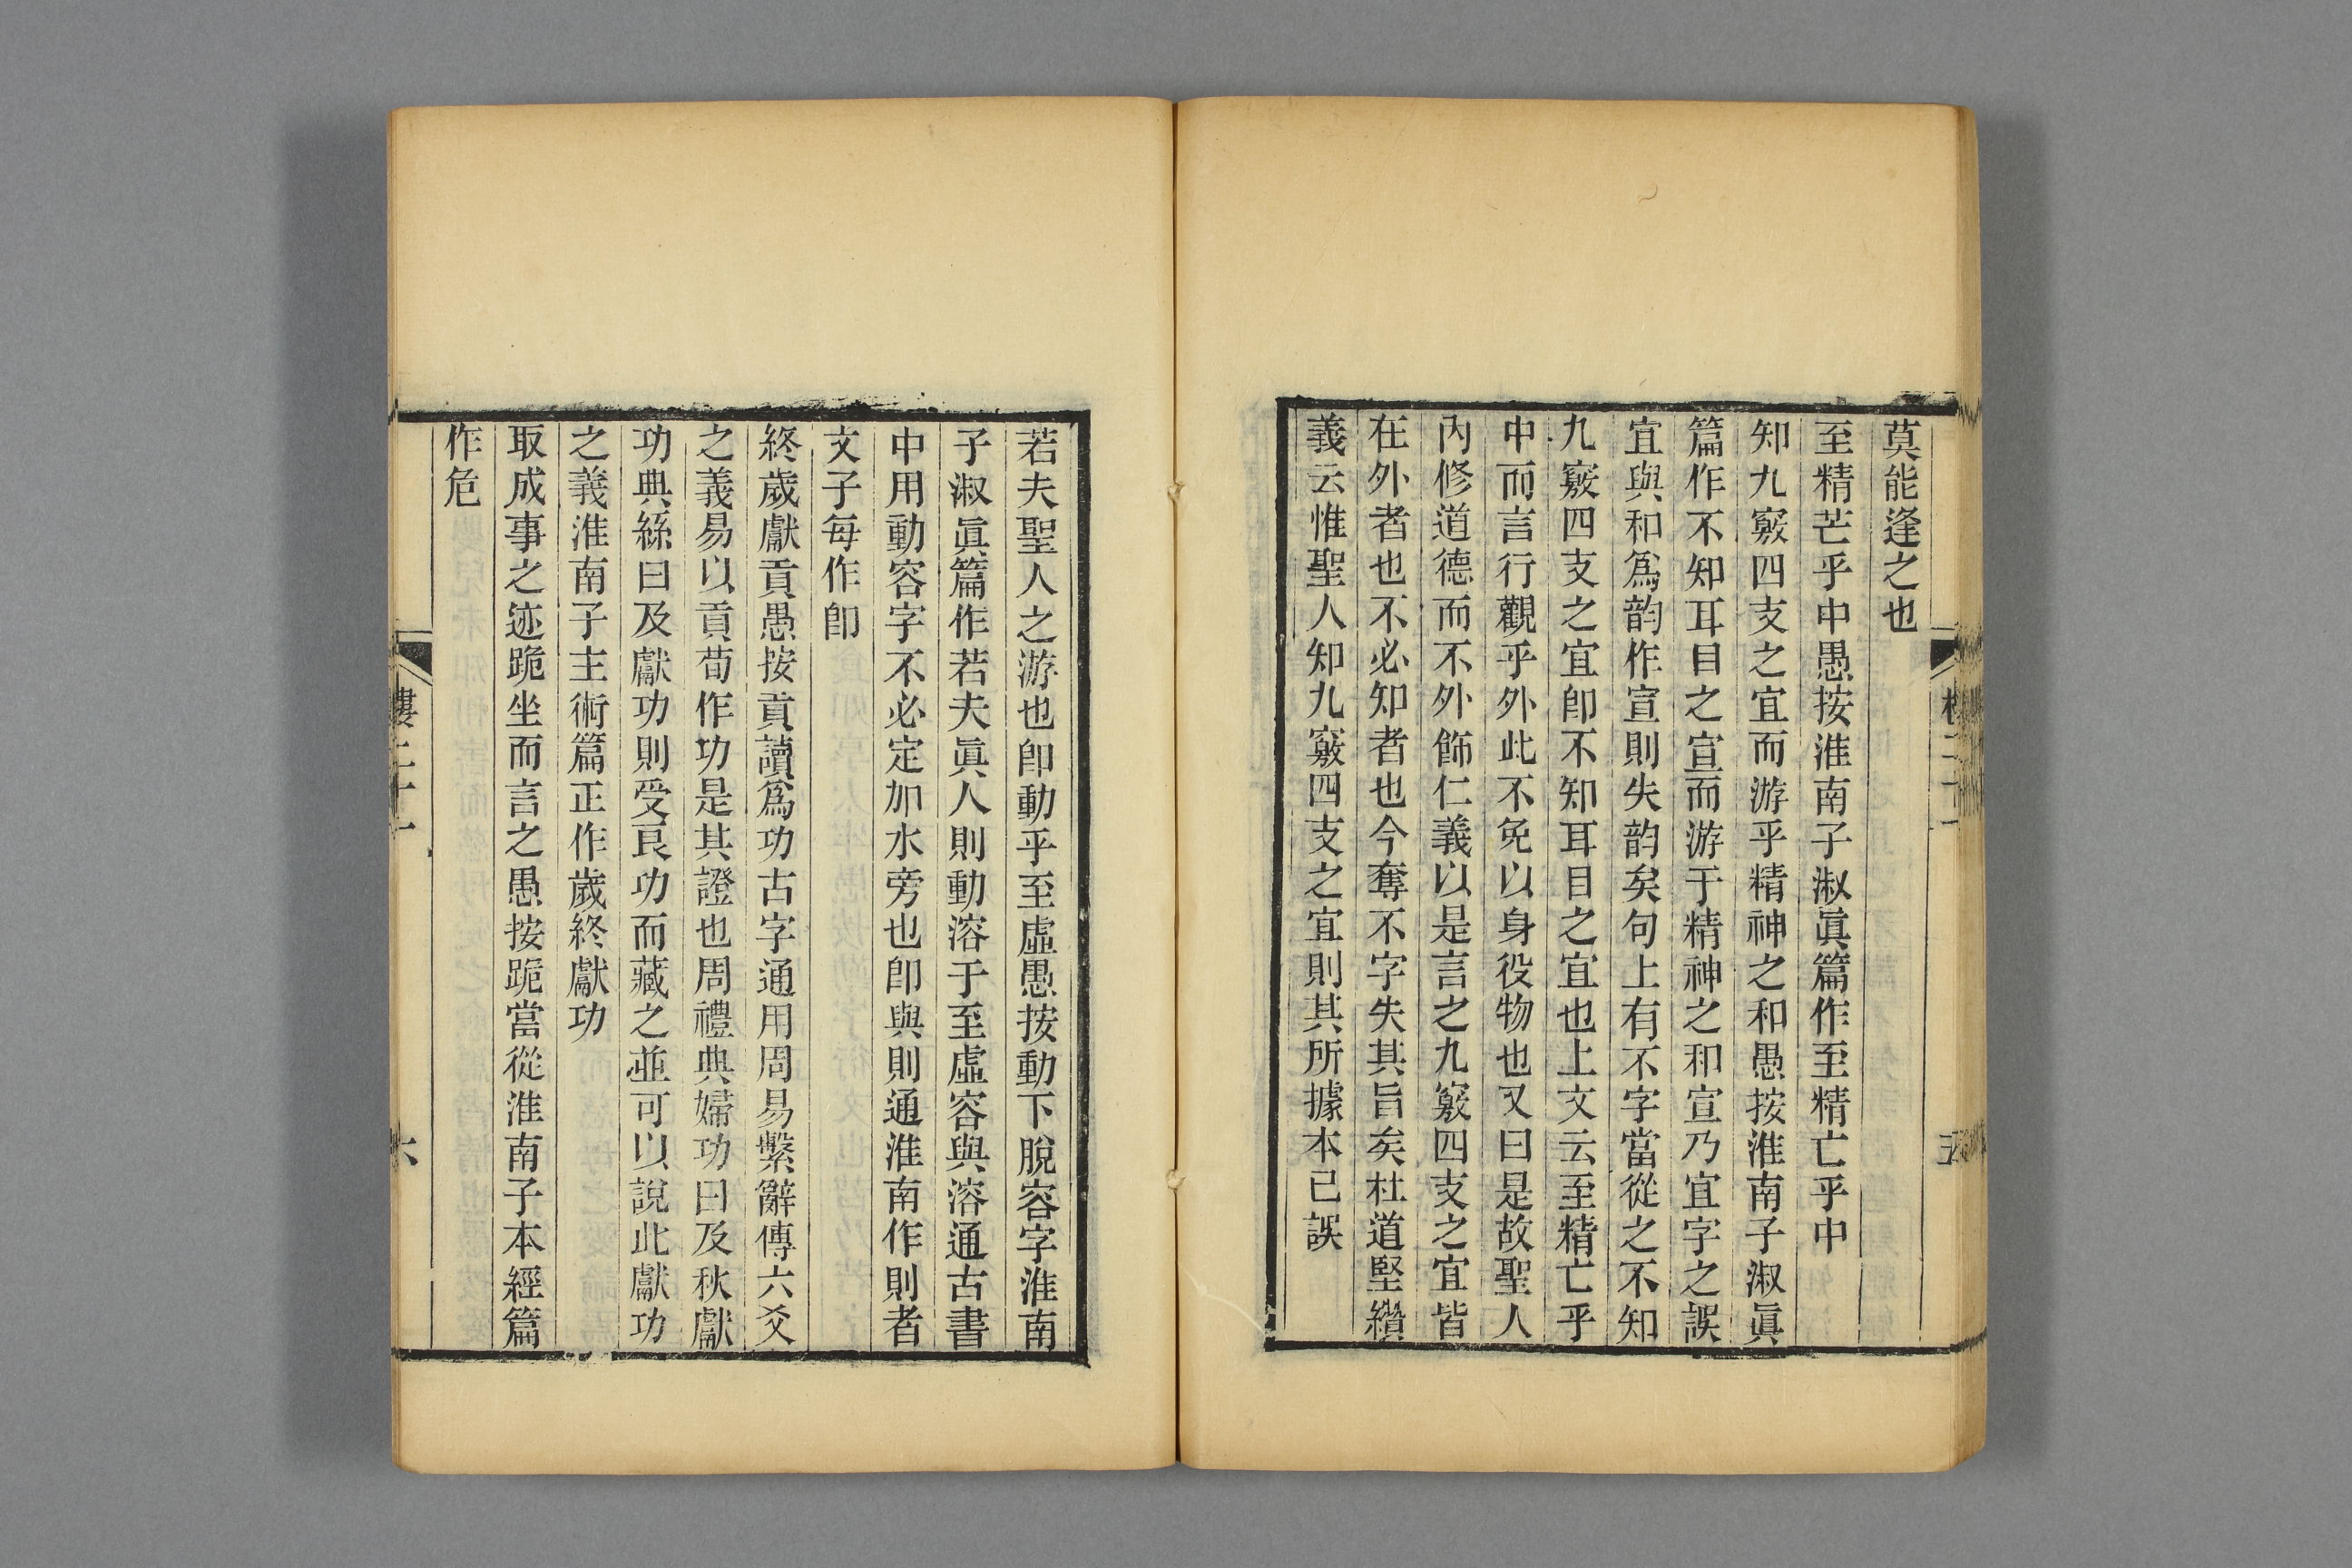 莫能逢之也
至精芒乎中愚按淮南子淑眞篇作至精亡乎中
知九竅四支之宜而游乎精神之和愚按淮南子淑眞
篇作不知耳目之宣而游于精神之和宣乃宜字之誤
宜與和爲韵作宣則失韵矣句上有不字當從之不知
九竅四支之宜卽不知耳目之宜也上文云至精亡乎
中而言行觀乎外此不免以身役物也又曰是故聖人
內修道德而不外飾仁義以是言之九竅四支之宜皆
在外者也不必知者也今奪不字失其旨矣杜道堅纘
義云惟聖人知九竅四支之宜則其所據本已誤
五
若夫聖人之游也卽動乎至虛愚按動下脫容字淮南
子淑眞篇作若夫眞人則動溶于至虛容與溶通古書
中用動容字不必定加水旁也卽與則通淮南作則者
文子每作卽
終歲獻貢愚按貢讀爲功古字通用周易繫辭傳六爻
之義易以貢荀作功是其證也周禮典婦功曰及秋獻
功典絲曰及獻功則受良功而藏之並可以說此獻功
之義淮南子主術篇正作歲終獻功
取成事之迹跪坐而言之愚按跪當從淮南子本經篇
作危
樓二十一
六